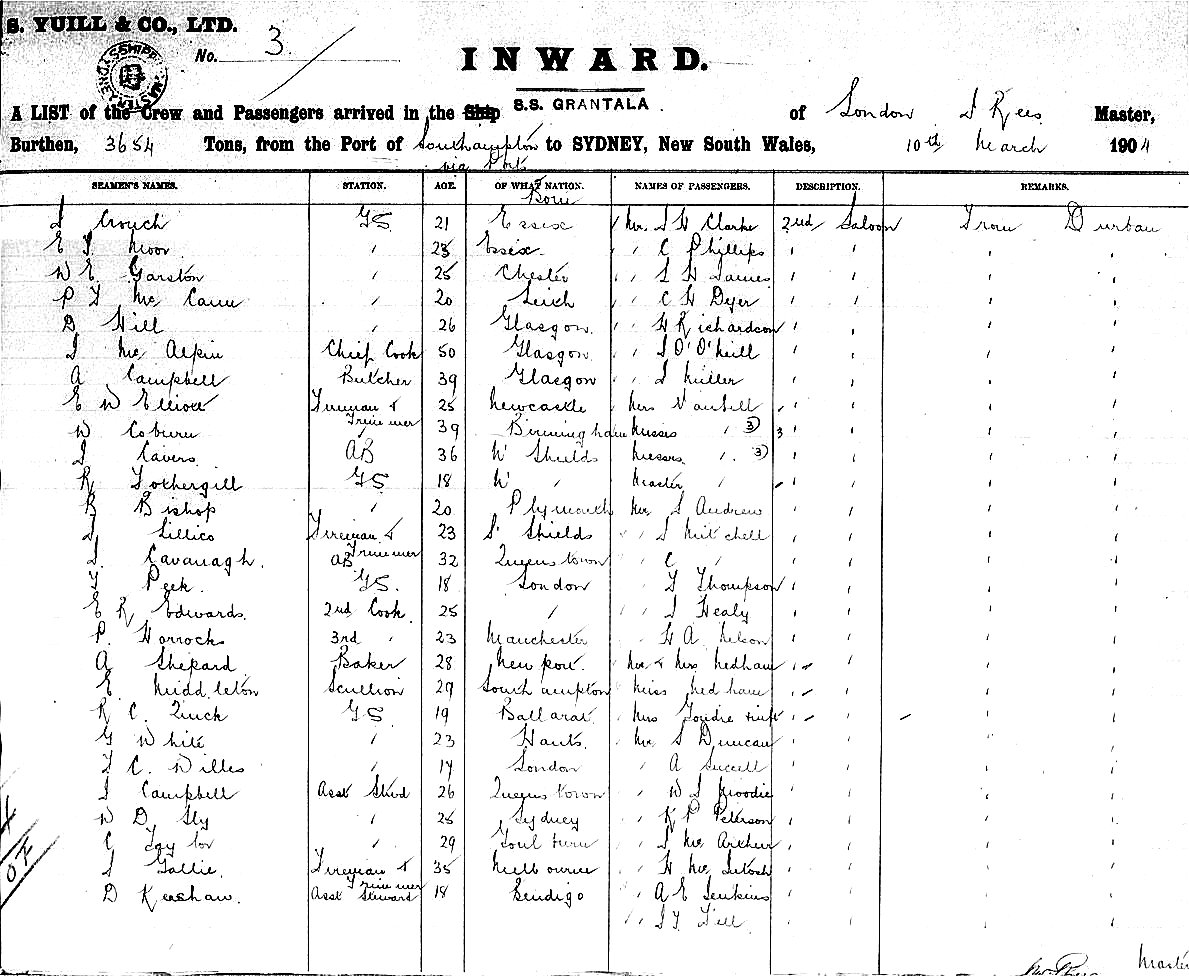 S. YUILL & CO., LTD.
No. 3.
INWARD.
A LIST of the Crew and Passengers arrived in the Ship S.S. GRANTALA of London J Rees Master,
Burthen, 3654 Tons, from the Port of Southampton to SYDNEY, New South Wales, 10th March 1904
via Ports
SEAMEN'S NAMES. STATION. AGE. OF WHAT NATION. NAMES OF PASSENGERS. DESCRIPTION. REMARKS.
Born
J Crouch GS 21 Essex Mr. J H Clarke 2nd Saloon From Durban
E J Moor " 23 Essex. " C Phillips " " " "
W E Garston " 25 Chester " " L H James " " " "
P F Mc Cann " 20 Leith " " C H Dyer " " " "
D Hill " 26 Glasgow. " " H Richardson " " " "
J Mc Alpin Chief Cook 50 Glasgow. " " J O'Neill " " " "
A Campbell Butcher 39 Glasgow " " J Miller " " " "
E W Elliott Fireman & Trimmer 25 Newcastle Mrs " " " "
W Coburn " 39 Birmingham Misses " (3) 3 " " "
J Cavers AB 36 N Shields Messrs " (3) " " "
R Fothergill GS 18 N " Master " " " " "
B Bishop " 20 Plymouth Mr. J Andrew " " " "
J Lillico Fireman & Trimmer 23 S. Shields " " J Mitchell " " " "
J Cavanagh. AB 32 Queenstown " " C " " " " "
Peek. GS. 18 London " " F Thompson " " " "
E R Edwards. 2nd Cook 25 " " " J Healy " " " "
P. Horrocks 3rd " 23 Manchester " " H A Nelson " " " "
A Shepard Baker 28 Newport. Mr & Mrs Nedham " " " "
E Middleton Scullion 29 Southampton Miss Nedham " " " "
R C. Quick GS 19 Ballarat. Mrs " " " "
G White " 23 Hants. Mr. S Duncan " " " "
F C. Willes " 17 London " A " " " "
J Campbell Asst Stwd 26 Queenstown " W J Moodie " " " "
W D Sly " 25 Sydney " " K P Peterson " " " "
C Taylor " 29 Goulburn " " J Mc Arthur " " " "
J Gallie. Fireman & Trimmer 35 Melbourne " " H Mc Intosh " " " "
D Kershaw. Asst Steward 18 Bendigo " " A E Jenkins " " " "
" " J F " " " "
Master